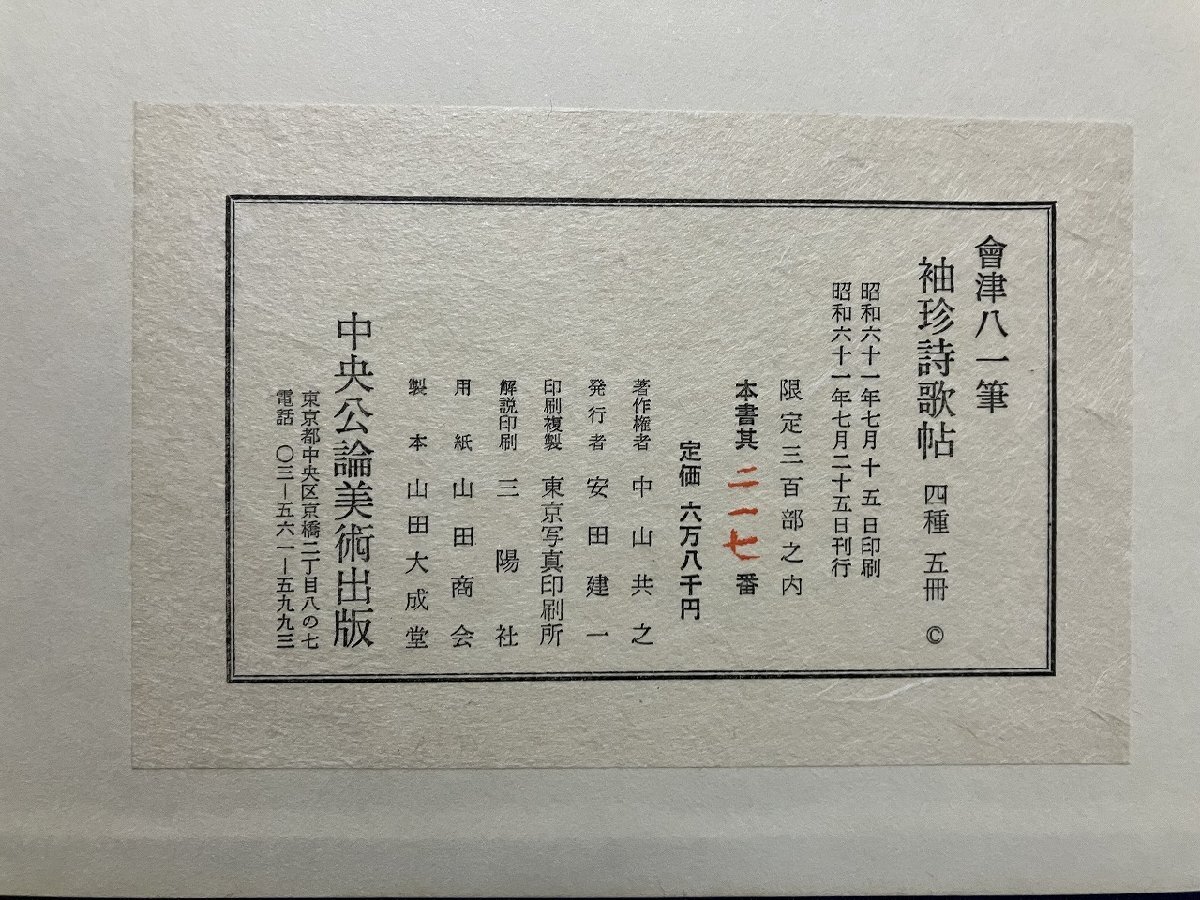 會津八一筆
袖珍詩歌帖 四種 五冊 ©
昭和六十一年七月十五日印刷
昭和六十一年七月二十五日刊行
限定三百部之内
本書其 二一七 番
定価 六万八千円
著作権者 中山共之
発行者 安田建一
印刷複製 東京写真印刷所
解説印刷 三陽社
用紙 山田商会
製本 山田大成堂
中央公論美術出版
東京都中央区京橋二丁目八の七
電話 〇三―五六一―五九九三